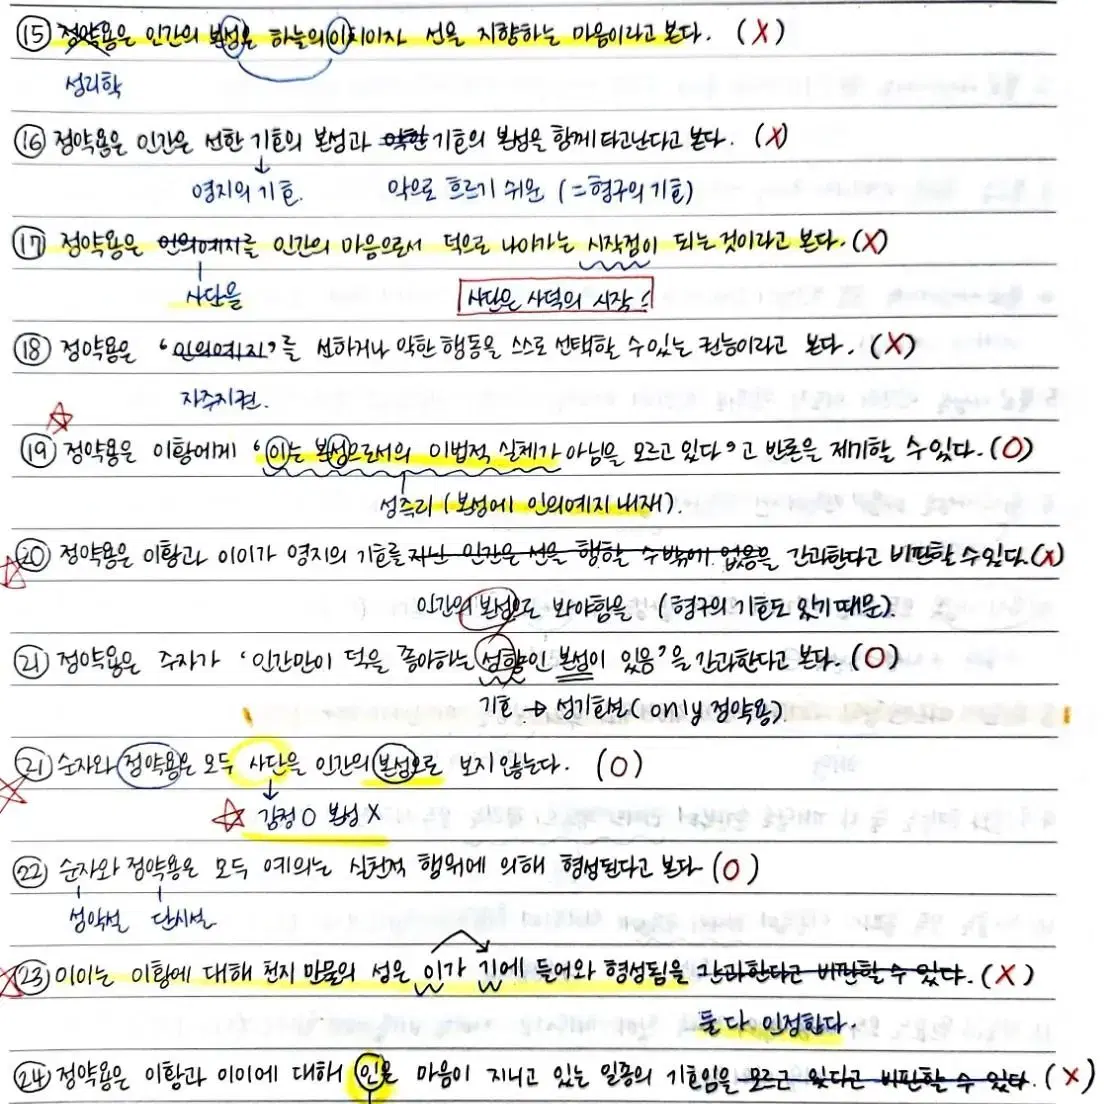 ⑮ 정약용은 인간의 본성은 하늘의 이치이자 선을 지향하는 마음이라고 본다. (X)
성리학
⑯ 정약용은 인간은 선한 기호의 본성과 악한 기호의 본성을 함께 타고난다고 본다. (X)
영지의 기호. 악으로 흐르기 쉬운 (=형구의 기호)
⑰ 정약용은 인의예지를 인간의 마음으로서 덕으로 나아가는 시작점이 되는 것이라고 본다. (X)
사단을 사단은 사덕의 시작!
⑱ 정약용은 '인의예지'를 선하거나 악한 행동을 스스로 선택할 수 있는 권능이라고 본다. (X)
자주지권.
⑲ 정약용은 이황에게 '이는 본성으로서의 이법적 실체가 아님을 모르고 있다'고 반론을 제기할 수 있다. (O)
성즉리 (본성에 인의예지 내재).
⑳ 정약용은 이황과 이이가 영지의 기호를 지닌 인간은 선을 행할 수밖에 없음을 간과한다고 비판할 수 있다. (X)
인간의 본성으로 봐야함을 (형구의 기호도 있기 때문).
㉑ 정약용은 주자가 '인간만이 덕을 좋아하는 성향인 본성이 있음'을 간과한다고 본다. (O)
기호 → 성기호설 (only 정약용)
㉑ 순자와 정약용은 모두 사단을 인간의 본성으로 보지 않는다. (O)
감정 O 본성 X
㉒ 순자와 정약용은 모두 예의는 실천적 행위에 의해 형성된다고 본다 (O)
성악설 단시설
㉓ 이이는 이황에 대해 천지 만물의 성은 이가 기에 들어와 형성됨을 간과한다고 비판할 수 있다. (X)
둘 다 인정한다.
㉔ 정약용은 이황과 이이에 대해 인을 마음이 지니고 있는 일종의 기호임을 모르고 있다고 비판할 수 있다. (X)